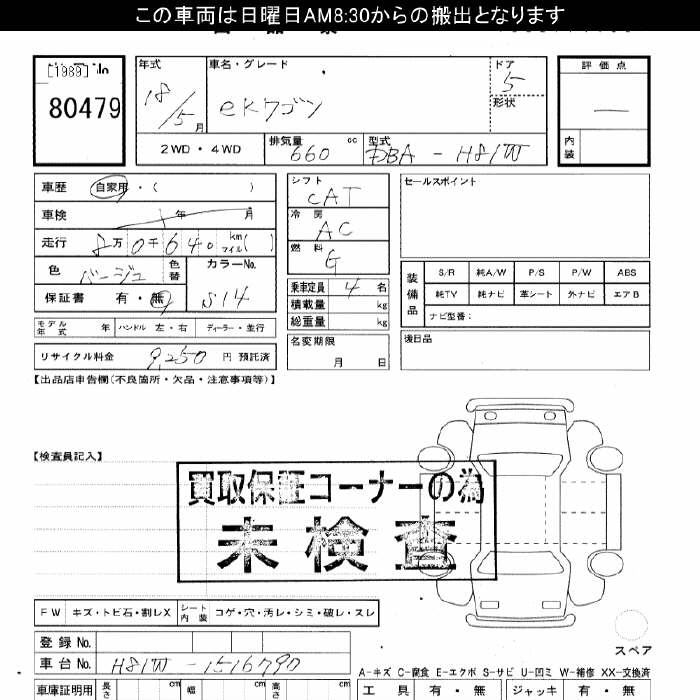 この車両は日曜日AM8:30からの搬出となります
[1989] No
80479
年式
18/5月
車名・グレード
eKワゴン
ドア
5
形状
評価点
—
内装
2WD・4WD
排気量
660 cc
型式
DBA - H81W
車歴 自家用・( )
車検 年 月
走行 8万0千640 km マイル( )
色 ベージュ 色替
カラーNo.
S14
保証書 有・無
モデル年式 年 ハンドル 左・右 ディーラー・並行
リサイクル料金 9,250 円 預託済
シフト
CAT
冷房
AC
燃料
G
乗車定員 4 名
積載量 kg
総重量 kg
名変期限
月 日
セールスポイント
装備品
S/R 純A/W P/S P/W ABS
純TV 純ナビ 革シート 外ナビ エアB
ナビ型番：
後日品
【出品店申告欄(不良箇所・欠品・注意事項等)】
【検査員記入】
買取保証コーナーの為
未検査
FW キズ・トビ石・割レX シート内装 コゲ・穴・汚レ・シミ・破レ・スレ
スペア
登録No.
車台No. H81W-1516790
A-キズ C-腐食 E-エクボ S-サビ U-凹ミ W-補修 XX-交換済
車庫証明用 長さ cm 幅 cm 高さ cm
工具 有・無 ジャッキ 有・無